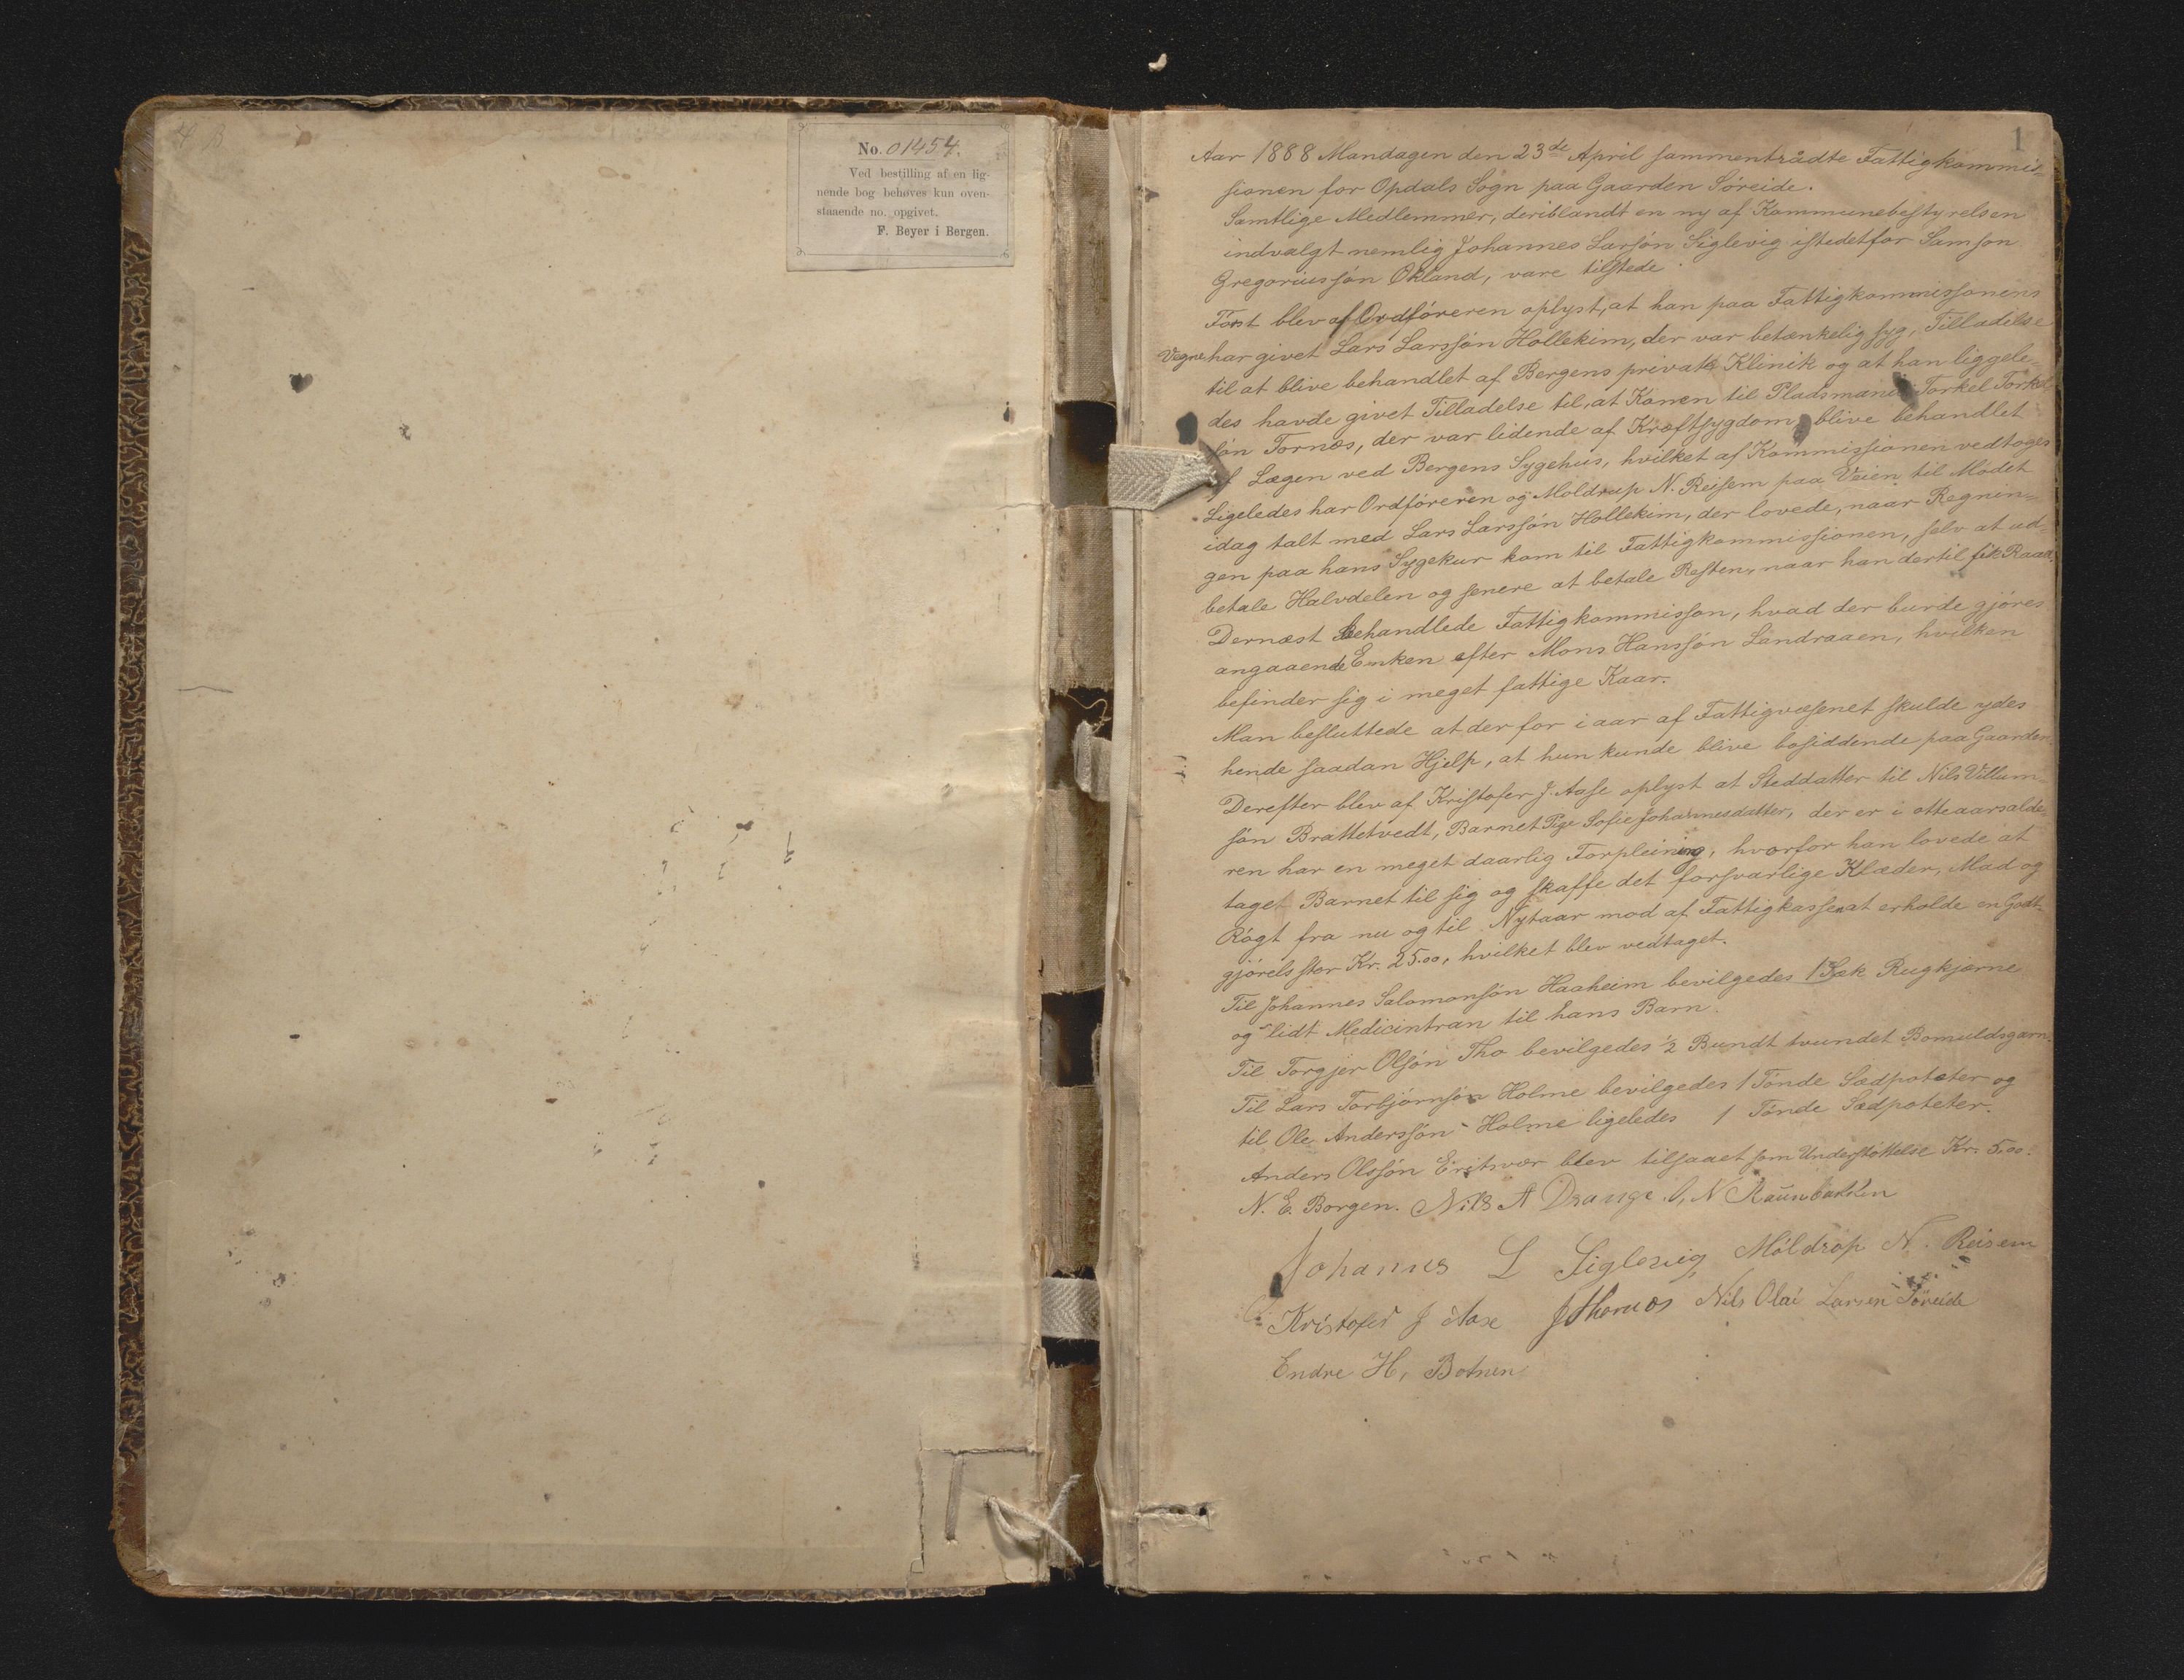 4 B
No. 01454.
Ved bestilling af en lig-
nende bog behøves kun oven-
staaende no. opgivet.
F. Beyer i Bergen.
1
Aar 1888 Mandagen den 23de April sammentrådte Fattigkommis
sionen for Opdals Sogn paa Gaarden Söreide.
Samtlige Medlemmer, deriblandt en ny af Kommunebestyrelsen
indvalgt nemlig Johannes Larsön Siglevig istedetfor Samson
Gregoriussön Økland, vare tilstede.
Först blev af Ordföreren oplyst, at han paa Fattigkommissonens
Vegne har givet Lars Larssön Hollekim, der var betænkelig syg, Tilladelse
til at blive behandlet af Bergens private Klinik og at han liggele-
des havde givet Tilladelse til, at Konen til Pladsmand Torkel Torkel
sön Tornæs, der var lidende af Kræftsygdom, blive behandlet
af Lægen ved Bergens Sygehus, hvilket af Kommissionen vedtoges
Ligeledes har Ordföreren og Moldrup N. Reisem paa Veien til Mödet
idag talt med Lars Larssön Hollekim, der lovede, naar Regnin-
gen paa hans Sygekur kom til Fattigkommissionen, selv at ud-
betale Halvdelen og senere at betale Resten, naar han dertil fik Raad.
Dernæst behandlede Fattigkommisson, hvad der burde gjöres
angaaende Enken efter Mons Hanssön Landraaen, hvilken
befinder sig i meget fattige Kaar.
Man besluttede at der for i aar af Fattigvæsenet skulde ydes
hende saadan Hjelp, at hun kunde blive bosiddende paa Gaarden.
Derefter blev af Kristofer J. Aase oplyst at Steddatter til Nils Villum-
sön Brattetvedt, Barnet Pige Sofie Johannesdatter, der er i otteaarsalde-
ren har en meget daarlig Forpleining, hvorfor han lovede at
taget Barnet til sig og skaffe det forsvarlige Klæder, Mad og
Rögt fra nu og til Nytaar mod af Fattigkassen at erholde en Godt-
gjörelsster Kr. 25.00, hvilket blev vedtaget.
Til Johannes Salomonsön Haaheim bevilgedes 1 Sæk Rugkjærne
og lidt Medicintran til hans Barn.
Til Torgjer Olsön Tho bevilgedes ½ Bundt tvundet Bomuldsgarn.
Til Lars Torbjörnsön Holme bevilgedes 1 Tönde Sædpoteter og
til Ole Anderssön Holme ligeledes 1 Tönde Sædpoteter.
Anders Olssön Eritsvær blev tilsaaet som Understöttelse Kr. 5.00.
N. E. Borgen. Nils A Drange. N
Johannes L Siglevig Möldrop N. Reisem
Kristofer J Aase J Thornæs Nils Olai Larsen Söreide
Endre H, Botnen